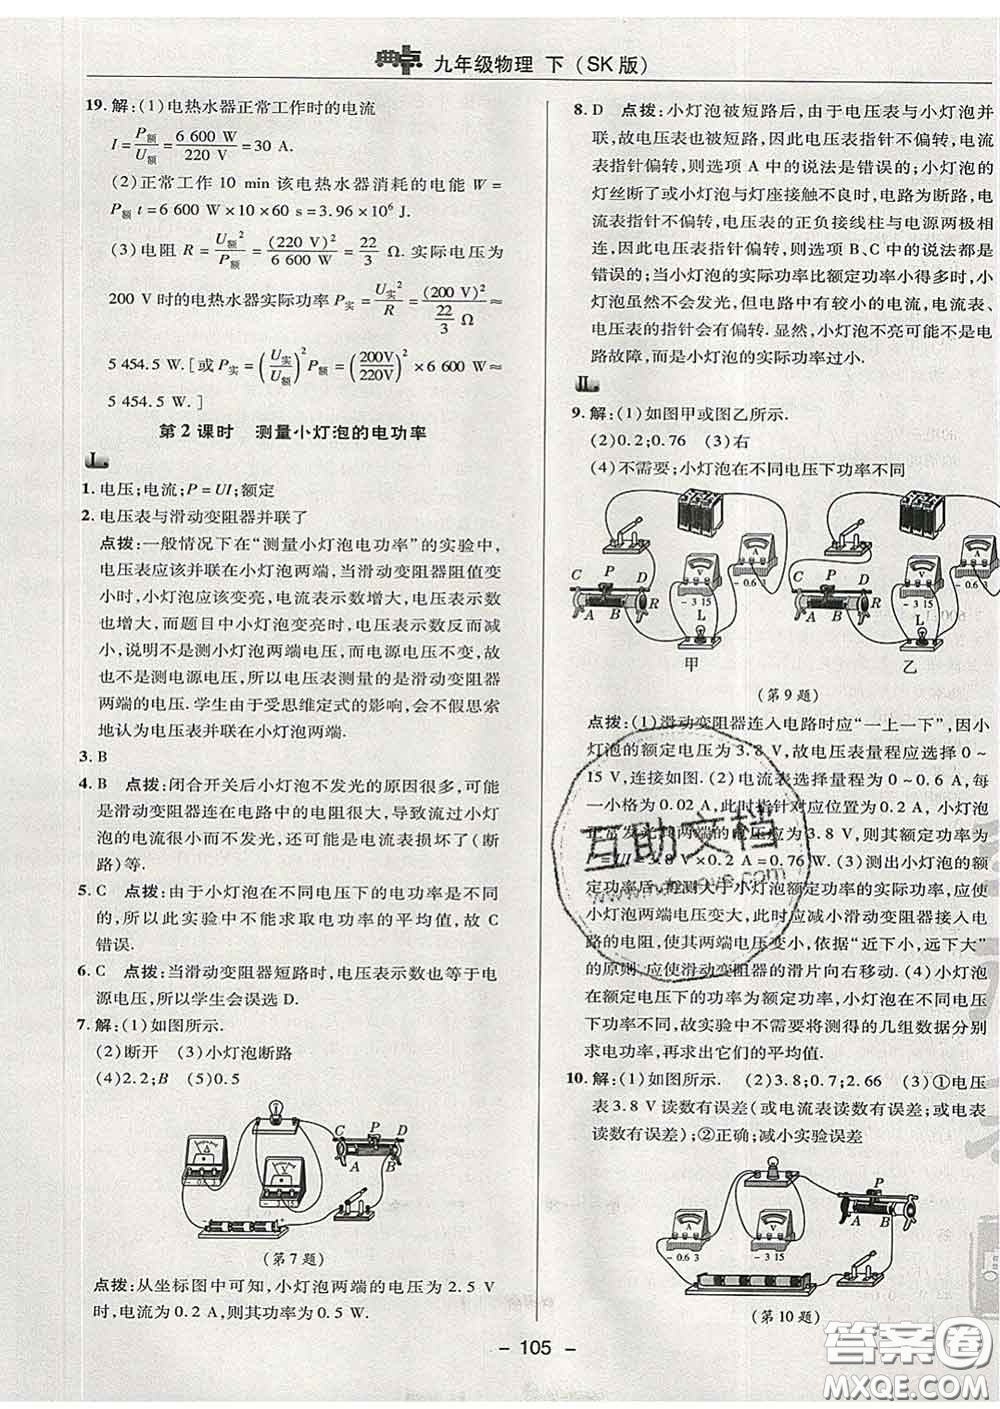 典中点 九年级物理 下(SK版)
19. 解:(1)电热水器正常工作时的电流
I=P额/U额=6 600 W/220 V=30 A.
(2)正常工作 10 min 该电热水器消耗的电能 W=
P额 t=6 600 W×10×60 s=3.96×10⁶ J.
(3)电阻 R=U额²/P额=(220 V)²/6 600 W=22/3 Ω. 实际电压为
200 V 时的电热水器实际功率 P实=U实²/R=(200 V)²/(22/3 Ω)≈
5 454.5 W. [或 P实=(U实/U额)² P额=(200V/220V)²×6 600 W≈
5 454.5 W. ]
第 2 课时 测量小灯泡的电功率
I.
1. 电压;电流;P=UI;额定
2. 电压表与滑动变阻器并联了
点拨:一般情况下在“测量小灯泡电功率”的实验中,
电压表应该并联在小灯泡两端,当滑动变阻器阻值变
小时,小灯泡应该变亮,电流表示数增大,电压表示数
也增大,而题目中小灯泡变亮时,电压表示数反而减
小,说明不是测小灯泡两端电压,而电源电压不变,故
也不是测电源电压,所以电压表测量的是滑动变阻器
两端的电压. 学生由于受思维定式的影响,会不假思索
地认为电压表并联在小灯泡两端.
3. B
4. B 点拨:闭合开关后小灯泡不发光的原因很多,可能
是滑动变阻器连在电路中的电阻很大,导致流过小灯
泡的电流很小而不发光,还可能是电流表损坏了(断
路)等.
5. C 点拨:由于小灯泡在不同电压下的电功率是不同
的,所以此实验中不能求取电功率的平均值,故 C
错误.
6. C 点拨:当滑动变阻器短路时,电压表示数也等于电
源电压,所以学生会误选 D.
7. 解:(1)如图所示.
(2)断开 (3)小灯泡断路
(4)2.2;B (5)0.5
C P D
A B
A
V
(第 7 题)
点拨:从坐标图中可知,小灯泡两端的电压为 2.5 V
时,电流为 0.2 A,则其功率为 0.5 W.
8. D 点拨:小灯泡被短路后,由于电压表与小灯泡并
联,故电压表也被短路,因此电压表指针不偏转,电流
表指针偏转,则选项 A 中的说法是错误的;小灯泡的
灯丝断了或小灯泡与灯座接触不良时,电路为断路,电
流表指针不偏转,电压表的正负接线柱与电源两极相
连,因此电压表指针偏转,选项 B、C 中的说法都是
错误的;当小灯泡的实际功率比额定功率小得多时,小
灯泡虽然不会发光,但电路中有较小的电流,电流表、
电压表的指针会有偏转. 显然,小灯泡不亮可能不是电
路故障,而是小灯泡的实际功率过小.
II.
9. 解:(1)如图甲或图乙所示.
(2)0.2;0.76 (3)右
(4)不需要;小灯泡在不同电压下功率不同
C P D
A B R
V
- 3 15
A
- 0.6 3
L
甲
C P D
A B R
V
- 3 15
A
- 0.6 3
L
乙
(第 9 题)
点拨:(1)滑动变阻器连入电路时应“一上一下”,因小
灯泡的额定电压为 3.8 V,故电压表量程应选择 0~
15 V,连接如图. (2)电流表选择量程为 0~0.6 A,每
一小格为 0.02 A,此时指针对应位置为 0.2 A,小灯泡
正常发光时两端的电压应为 3.8 V,则其额定功率为
P=UI=3.8 V×0.2 A=0.76 W. (3)测出小灯泡的额
定功率后,想测大于小灯泡额定功率的实际功率,应使
小灯泡两端电压变大,此时应减小滑动变阻器接入电
路的电阻,使其两端电压变小,依据“近下小,远下大”
的原则,应使滑动变阻器的滑片向右移动. (4)小灯泡
在额定电压下的功率为额定功率,小灯泡在不同电压
下功率不同,故实验中不需要将测得的几组数据分别
求电功率,再求出它们的平均值.
10. 解:(1)如图所示. (2)3.8;0.7;2.66 (3)①电压
表 3.8 V 读数有误差(或电流表读数有误差,或电表
读数有误差);②正确;减小实验误差
P
A B
- 0.6 3
- 3 15
(第 10 题)
- 105 -
互助文档
答案圈
MXQE.COM